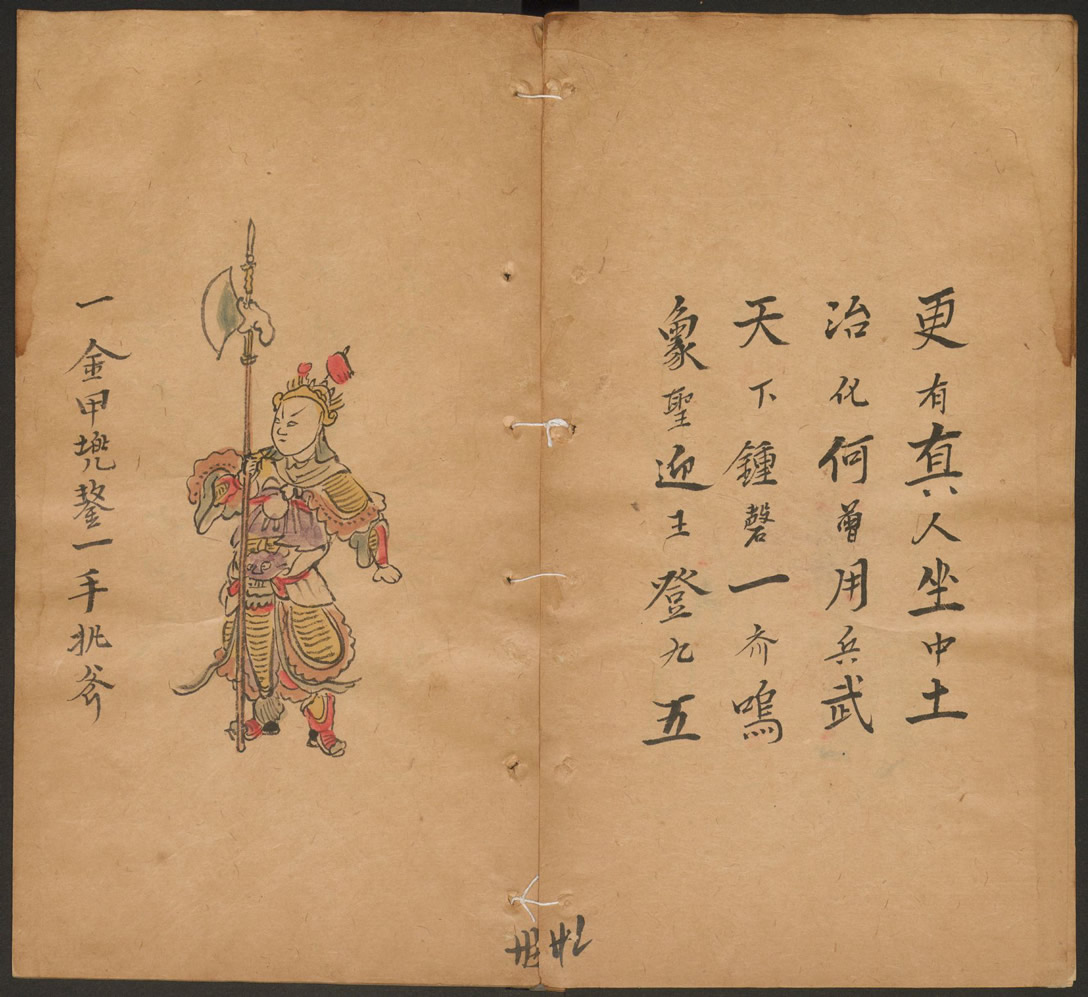 更有真人坐中土
治化何曾用兵武
天下鍾磬一齐鳴
象聖迎王登九五
一金甲兠鍪一手執斧